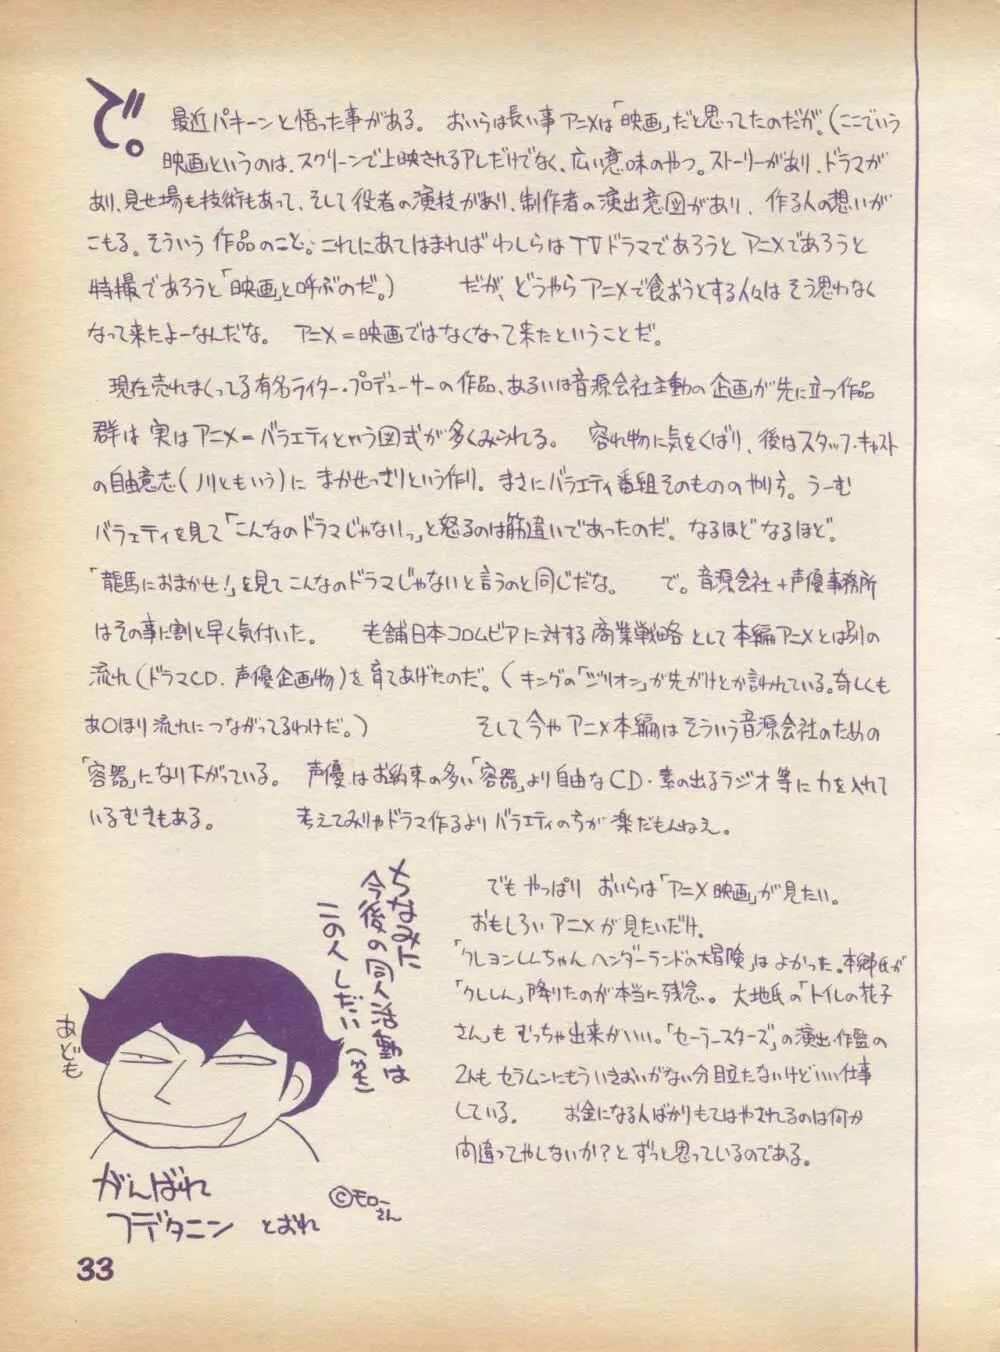 で。 最近パキーンと悟った事がある。 おいらは長い事アニメは「映画」だと思ってたのだが。(ここでいう
映画というのは、スクリーンで上映されるアレだけでなく、広い意味のやつ。ストーリーがあり、ドラマが
あり、見せ場も技術もあって、そして役者の演技があり、制作者の演出意図があり、作る人の想いが
こもる。そういう作品のこと。これにあてはまればわしらはTVドラマであろうとアニメであろうと
特撮であろうと「映画」と呼ぶのだ。) だが、どうやらアニメで食おうとする人々はそう思わなく
なって来たよーなんだな。 アニメ=映画ではなくなって来たということだ。
現在売れまくってる有名ライター・プロデューサーの作品、あるいは音源会社主動の企画が先に立つ作品
群は実はアニメ=バラエティという図式が多くみられる。 容れ物に気をくばり、後はスタッフ・キャスト
の自由意志(川ともいう)にまかせっきりという作り。まさにバラエティ番組そのもののやり方。うーむ
バラエティを見て「こんなのドラマじゃないっ」と怒るのは筋違いであったのだ。なるほどなるほど。
「龍馬におまかせ!」を見てこんなのドラマじゃないと言うのと同じだな。 で。音源会社+声優事務所
はその事に割と早く気付いた。 老舗日本コロムビアに対する商業戦略として本編アニメとは別の
流れ(ドラマCD、声優企画物)を育てあげたのだ。(キングの「ジリオン」が先がけとか言われている。奇しくも
あ○ほり流れにつながってるわけだ。) そして今やアニメ本編はそういう音源会社のための
「容器」になり下がっている。 声優はお約束の多い「容器」より自由なCD・素の出るラジオ等に力を入れて
いるむきもある。 考えてみりゃドラマ作るよりバラエティの方が楽だもんねえ。
でもやっぱりおいらは「アニメ映画」が見たい。
おもしろいアニメが見たいだけ。
「クレヨンしんちゃんヘンダーランドの大冒険」はよかった。本郷氏が
「クレしん」降りたのが本当に残念。大地氏の「トイレの花子
さん」もむっちゃ出来がいい。「セーラースターズ」の演出・作監の
2人もセラムンにもういきおいがない分目立たないけどいい仕事
している。 お金になる人ばかりもてはやされるのは何か
間違ってやしないか?とずっと思っているのである。
ちなみに
今後の同人活動は
この人しだい
あども
がんばれ
フデタニン とおれ
©モローさん
33